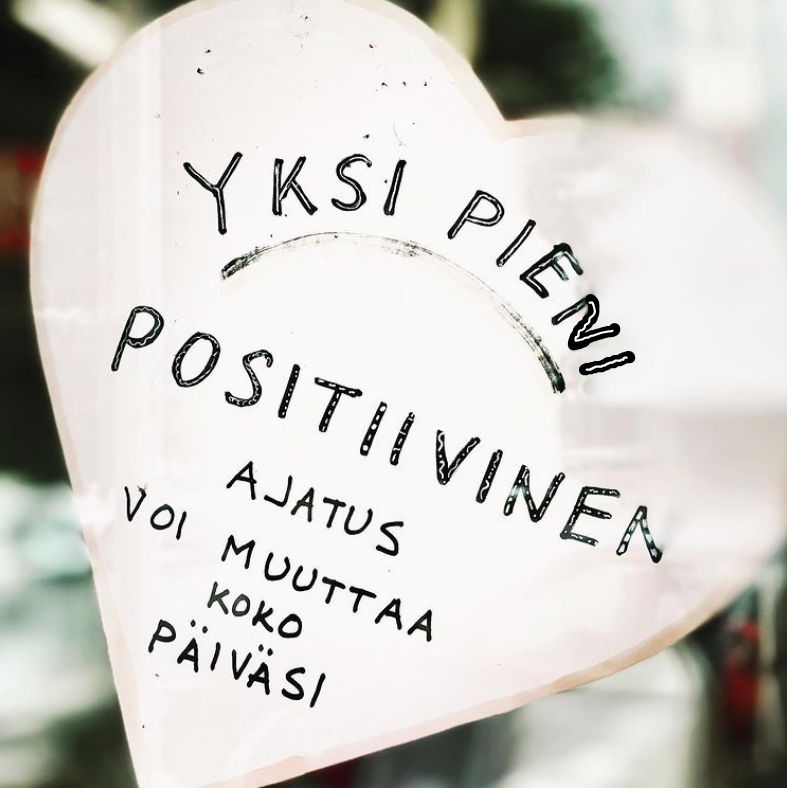 YKSI PIENI
POSITIIVINEN
AJATUS
VOI MUUTTAA
KOKO
PÄIVÄSI